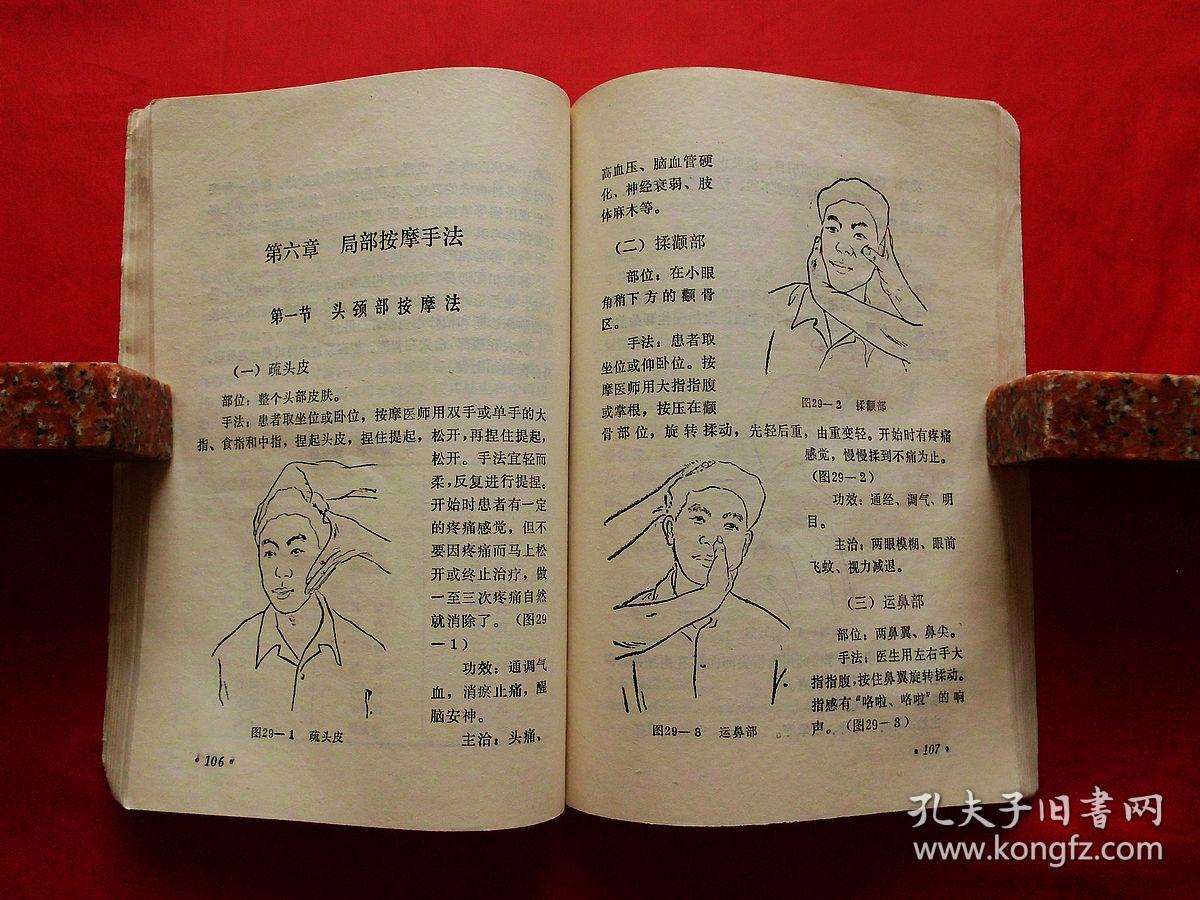 第六章　局部按摩手法
第一节　头颈部按摩法
（一）疏头皮
部位：整个头部皮肤。
手法：患者取坐位或卧位，按摩医师用双手或单手的大
指、食指和中指，捏起头皮，捏住提起，松开，再捏住提起，
松开。手法宜轻而
柔，反复进行提捏。
开始时患者有一定
的疼痛感觉，但不
要因疼痛而马上松
开或终止治疗，做
一至三次疼痛自然
就消除了。（图29
—1）
功效：通调气
血，消瘀止痛，醒
脑安神。
主治：头痛、
图29—1　疏头皮
·106·
高血压、脑血管硬
化、神经衰弱、肢
体麻木等。
（二）揉颧部
部位：在小眼
角稍下方的颧骨
区。
手法：患者取
坐位或仰卧位。按
摩医师用大指指腹
或掌根，按压在颧
骨部位，旋转揉动，先轻后重，由重变轻。开始时有疼痛
感觉，慢慢揉到不痛为止。
（图29—2）
功效：通经、调气、明
目。
主治：两眼模糊、眼前
飞蚊、视力减退。
图29—2　揉颧部
（三）运鼻部
部位：两鼻翼、鼻尖。
手法：医生用左右手大
指指腹，按住鼻翼旋转揉动。
指感有“咯啦、咯啦”的响
声。（图29—3）
图29—3　运鼻部
·107·
孔夫子旧书网
www.kongfz.com